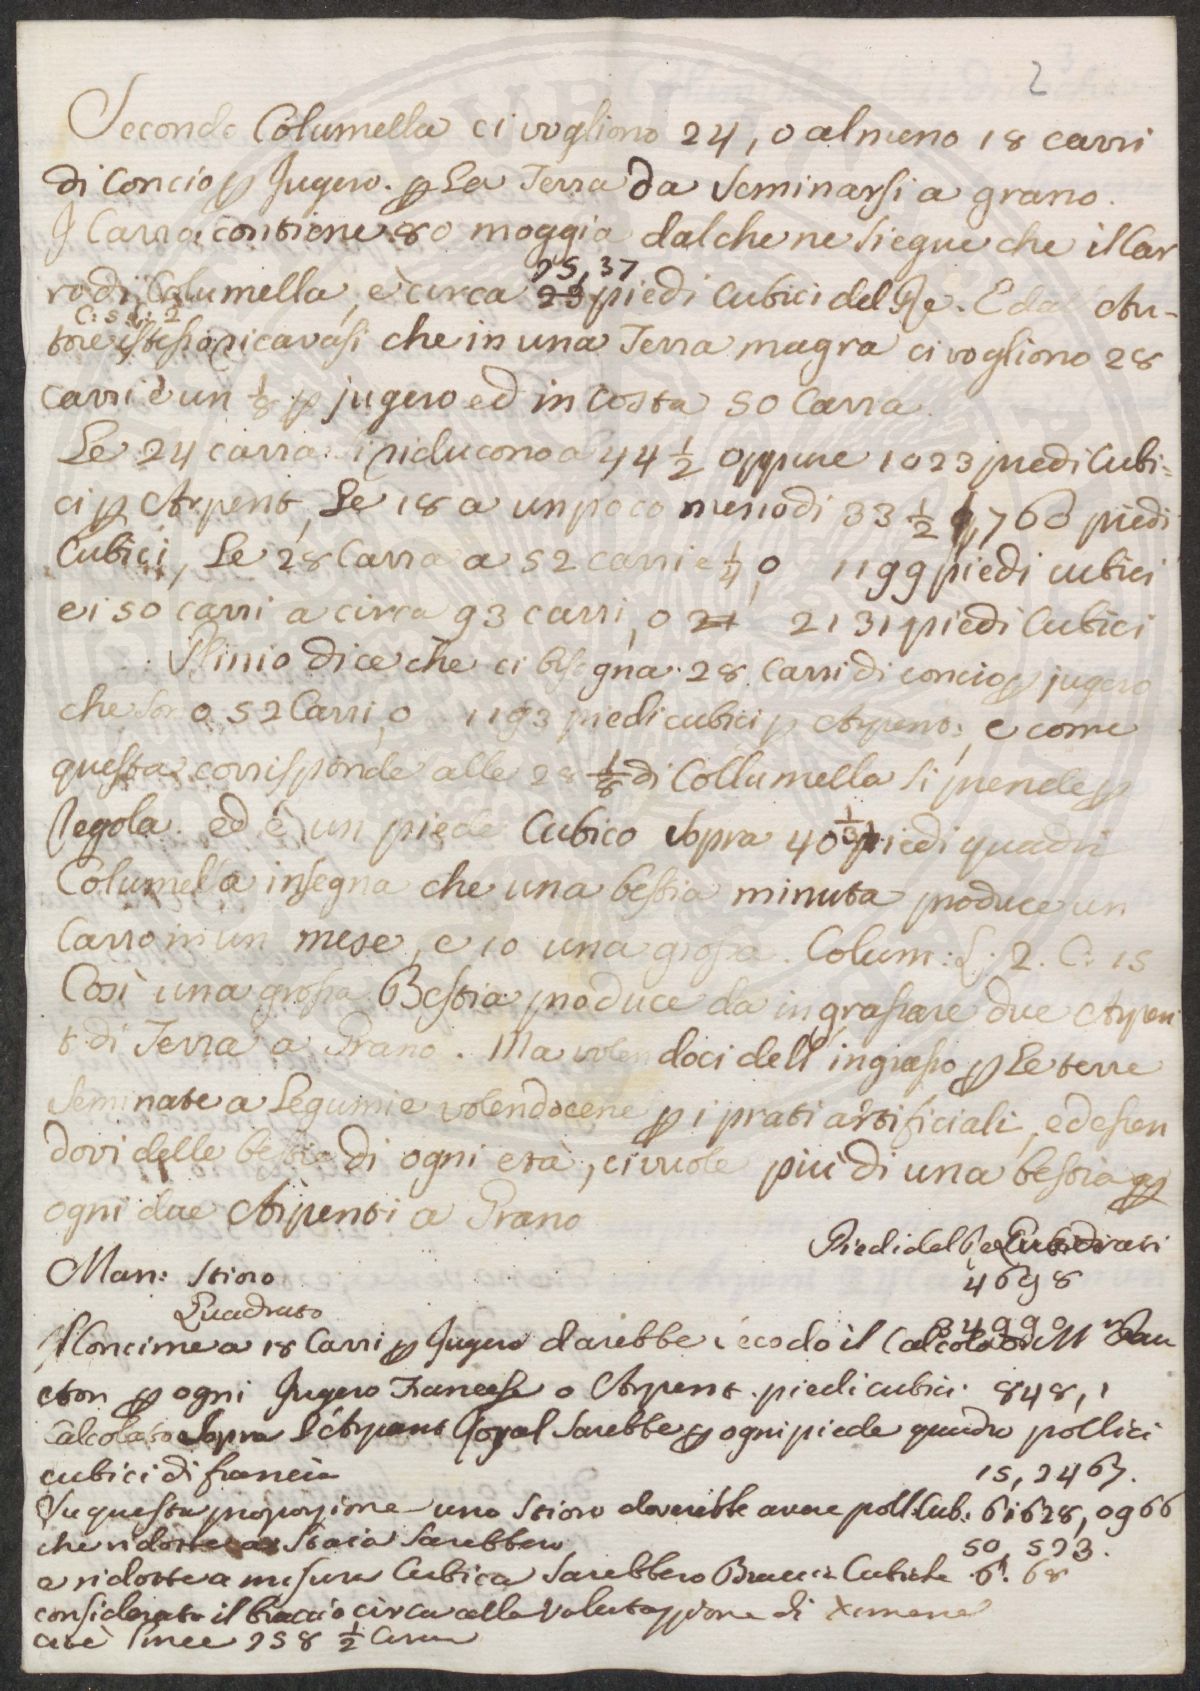 2
Secondo Columella ci vogliono 24, o almeno 18 carri
di Concio p Jugero. p La Terra da Seminarsi a grano.
I Carra contiene 80 moggia dalche ne siegue che il Car
25,37
ro di Columella, è circa 23 piedi Cubici del Re. E dal Au-
C: s L: 2
tore istesso ricavasi che in una Terra magra ci vogliono 28
carri è un 1/8 p jugero ed in Costa 50 Carra.
Le 24 carra si riducono a 44 1/2 oppure 1023 piedi Cubi-
ci p Arpent, Le 18 a un poco meno di 33 1/2 , 763 piedi
Cubici, Le 28 Carra a 52 carri e 1/4, o 1199 piedi cubici
e i 50 carri a circa 93 carri, o 2131 piedi Cubici
Plinio dice che ci bisogna 28 Carri di concio p jugero
che sono 52 Carri, o 1193 piedi cubici p Arpent; e come
questa corrisponde alle 28 1/8 di Collumella si prende p
Regola. ed è un piede Cubico sopra 40 1/3 piedi quadri
Columella insegna che una bestia minuta produce un
Carro in un mese, e 10 una grossa. Colum: L. 2. C: 15
Così una grossa Bestia produce da ingrassare due Arpen
t di Terra a Grano. Ma volendoci dell'ingrasso p Le terre
Seminate a Legumi e volendocene p i prati artificiali, ed essen
dovi delle bestie di ogni età, ci vuole più di una bestia p
ogni due Arpenti a Grano
Piedi del Re Quadrati
Man: Stioro 4698
Quadrato
34990
Il Concime a 18 Carri p Jugero darebbe secodo il Calcolo di M Pau
cton p ogni Jugero Francese o Arpent. piedi cubici 848,1
Calcolato sopra L'Arpent Royal sarebbe p ogni piede quadro pollici
cubici di francia 15,2467.
In questa proporzione uno Stioro doverebbe avere poll. Cub. 61628,0966
che ridotte a Staia sarebbero 50,523.
e ridotte a misura Cubica sarebbero Braccia Cubiche 6. 68
considerato il braccio circa alla Valutazione di Ximenes
cioè linee 258 1/2 Circa